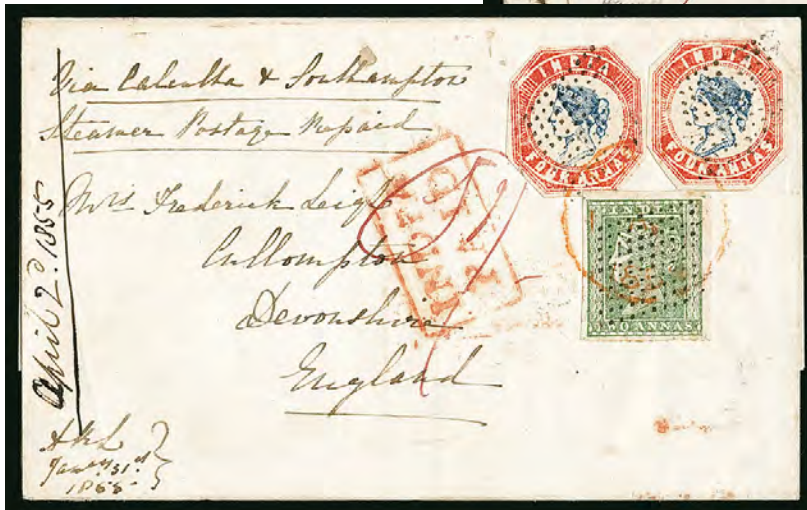 Via Calcutta & Southampton
Steamer Postage Prepaid
Mrs Frederick Leigh
Cullompton
Devonshire
England
April 2d. 1855
Jany. 31st
1855
INDIA
FOUR ANNAS
INDIA
FOUR ANNAS
INDIA
TWO ANNAS
INDIA
PAID